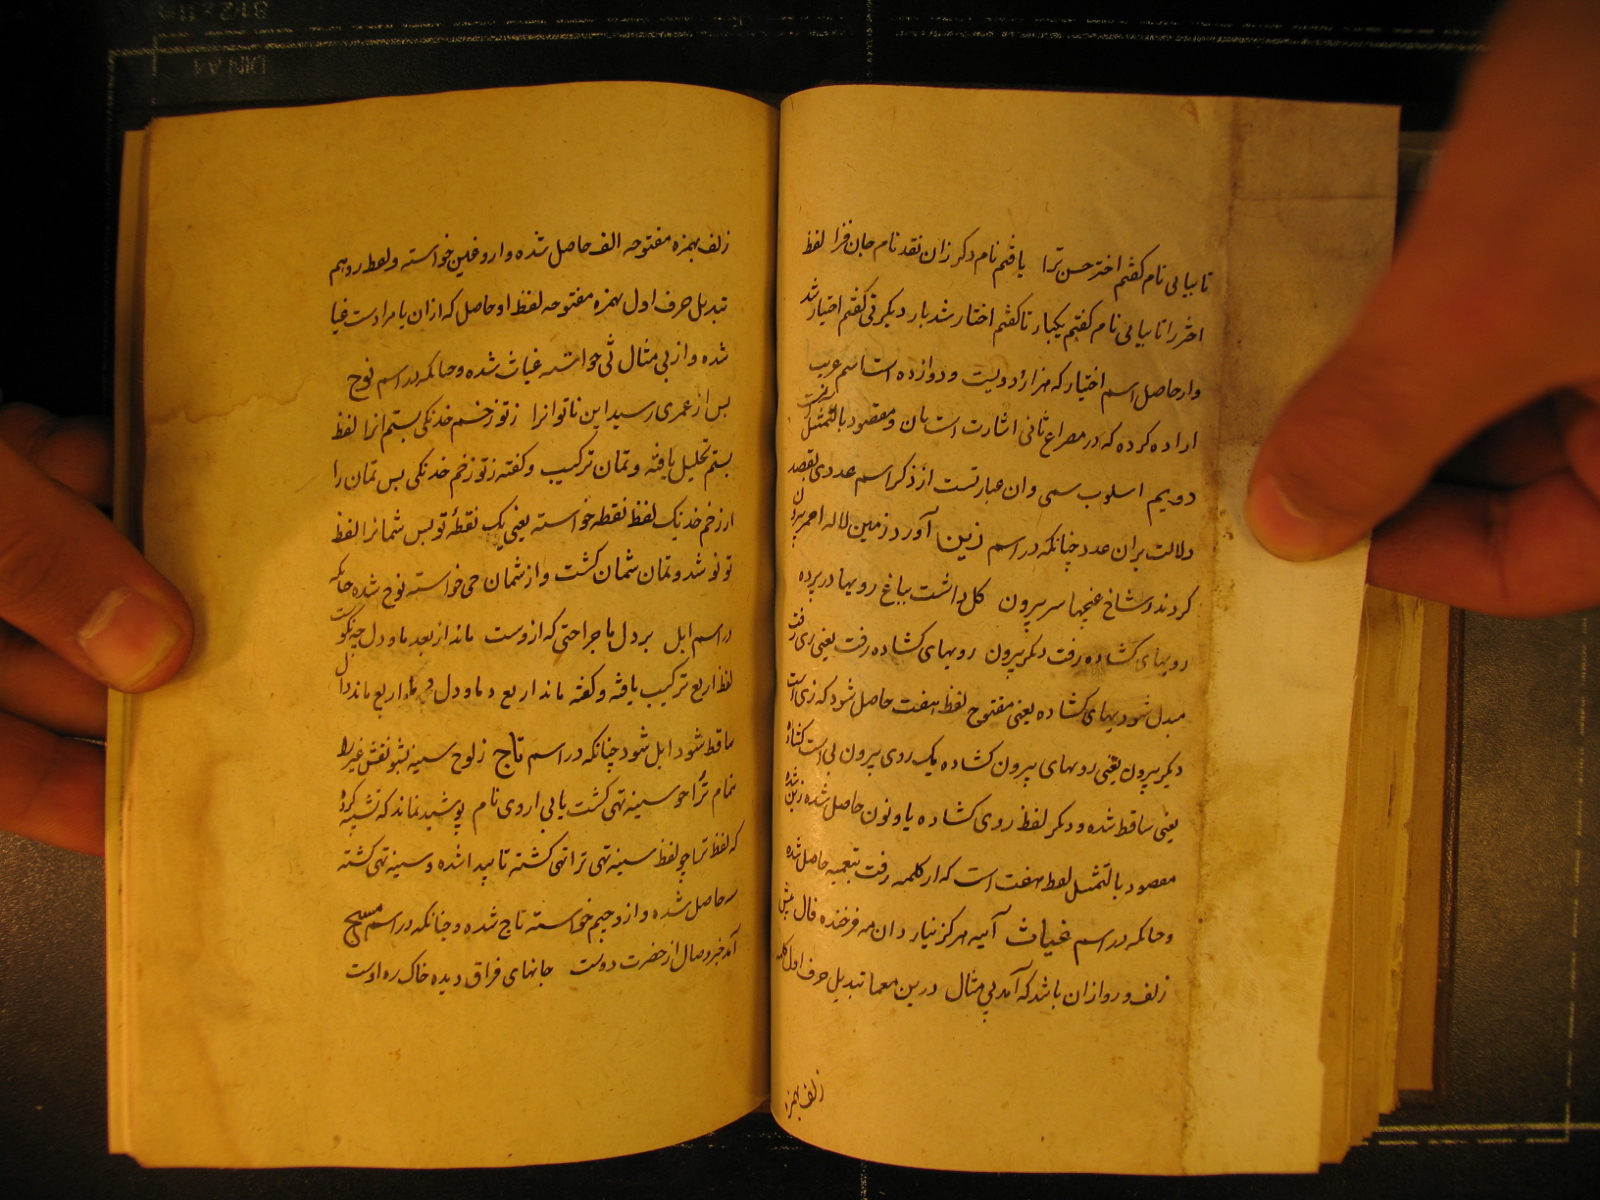 تا بیابی نام کفتم اختر حسن ترا یافتم نام دکر زان نقد نام جان فزا لفظ
اختر را تا بیابی نام کفتم یکبار تا کفتم اختار شد بار دیکر تی کفتم اختیار شد
واز حاصل اسم اختیار که هزار و دویست و دوازده است اسم عرب
اراده کرده که در مصراع ثانی اشارت است بان و مقصود بالتمثیل
دویم اسلوب سمی و ان عبارتست از ذکر اسم عددی بقصد
دلالت بران عدد چنانکه در اسم زین آورد زمین لاله احمر بیرون
کردند ز شاخ غنچها سر بیرون کل داشت بباغ رویها در پرده
رویهای کشاده رفت دیکر بیرون رویهای کشاده رفت یعنی ری رفت
مبدل شود بهای کشاده یعنی مفتوح لفظ هفت حاصل شود که زی است
دیکر بیرون یعنی رویهای بیرون کشاده یک روی بیرون بی است کشاده
یعنی ساقط شده و دیکر لفظ روی کشاده یا و نون حاصل شده زین شده
مقصود بالتمثیل لفظ هفت است که از کلمه رفت بتعمیه حاصل شده
و چنانکه در اسم غیاث آیینه هرکز نیارد ان مه فرخنده فال پیش
زلف و رو ازان باشد که آمد بی مثال درین معما تبدیل حرف اول کلمه
زلف بهمزه
زلف بهمزه مفتوحه الف حاصل شده و از و غین خواسته و لفظ رو هم
تبدیل حرف اول بهمزه مفتوحه لفظ او حاصل که ازان یا مرادست غیا
شده و از بی مثال ثی خواسته غیاث شده و چنانکه در اسم نوح
پس از عمری رسید این ناتوانرا ز تو زخم خدنکی بستم انرا لفظ
بستم تحلیل یافته و تمان ترکیب و کفته ز تو زخم خدنکی بس تمان را
از زخم خدنک لفظ نقطه خواسته یعنی یک نقطهٔ تو بس شمانرا لفظ
تو نو شد و تمان شمان کشت و از شمان حی خواسته نوح شده چنانکه
در اسم ابل بر دل ما جراحتی که از وست ماند از بعد ما و دل چه نکوست
لفظ اربع ترکیب یافته و کفته ماند اربع دما و دل اربع ماند دال
ساقط شود ابل شود چنانکه در اسم تاج ز لوح سینه بشو نقش غیر را
تمام ترا چو سینه تهی کشت یابی از وی نام پوشیده نماند که تشبیه کرده
که لفظ ترا چو لفظ سینه تهی ترا تهی کشته تا پیدا شده و سینه تهی کشته
سه حاصل شده و از و جیم خواسته تاج شده و چنانکه در اسم مسیح
آمد خبر وصال از حضرت دوست جانهای فراق دیده خاک ره اوست